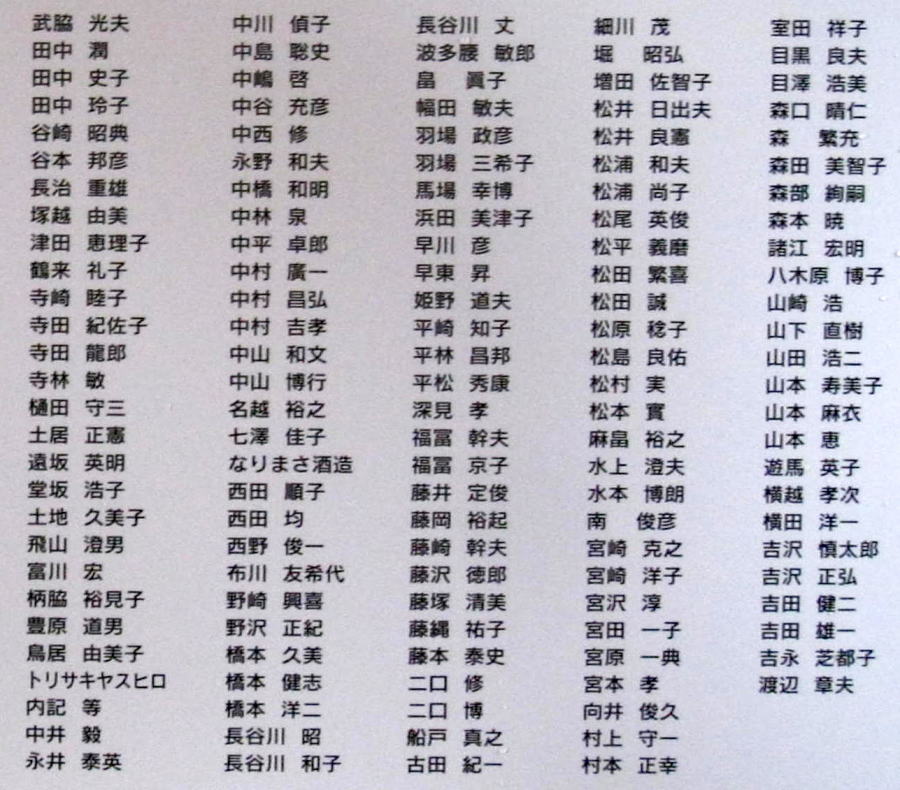 武脇 光夫
田中 潤
田中 史子
田中 玲子
谷崎 昭典
谷本 邦彦
長治 重雄
塚越 由美
津田 恵理子
鶴来 礼子
寺崎 睦子
寺田 紀佐子
寺田 龍郎
寺林 敏
樋田 守三
土居 正憲
遠坂 英明
堂坂 浩子
土地 久美子
飛山 澄男
富川 宏
柄脇 裕見子
豊原 道男
鳥居 由美子
トリサキヤスヒロ
内記 等
中井 毅
永井 泰英
中川 偵子
中島 聡史
中嶋 啓
中谷 充彦
中西 修
永野 和夫
中橋 和明
中林 泉
中平 卓郎
中村 廣一
中村 昌弘
中村 吉孝
中山 和文
中山 博行
名越 裕之
七澤 佳子
なりまさ酒造
西田 順子
西田 均
西野 俊一
布川 友希代
野崎 興喜
野沢 正紀
橋本 久美
橋本 健志
橋本 洋二
長谷川 昭
長谷川 和子
長谷川 丈
波多腰 敏郎
畠 眞子
幅田 敏夫
羽場 政彦
羽場 三希子
馬場 幸博
浜田 美津子
早川 彦
早東 昇
姫野 道夫
平崎 知子
平林 昌邦
平松 秀康
深見 孝
福冨 幹夫
福冨 京子
藤井 定俊
藤岡 裕起
藤崎 幹夫
藤沢 徳郎
藤塚 清美
藤縄 祐子
藤本 泰史
二口 修
二口 博
船戸 真之
古田 紀一
細川 茂
堀 昭弘
増田 佐智子
松井 日出夫
松井 良憲
松浦 和夫
松浦 尚子
松尾 英俊
松平 義磨
松田 繁喜
松田 誠
松原 稔子
松島 良佑
松村 実
松本 實
麻畠 裕之
水上 澄夫
水本 博朗
南 俊彦
宮崎 克之
宮崎 洋子
宮沢 淳
宮田 一子
宮原 一典
宮本 孝
向井 俊久
村上 守一
村本 正幸
室田 祥子
目黒 良夫
目澤 浩美
森口 晴仁
森 繁充
森田 美智子
森部 絢嗣
森本 暁
諸江 宏明
八木原 博子
山崎 浩
山下 直樹
山田 浩二
山本 寿美子
山本 麻衣
山本 恵
遊馬 英子
横越 孝次
横田 洋一
吉沢 慎太郎
吉沢 正弘
吉田 健二
吉田 雄一
吉永 芝都子
渡辺 章夫